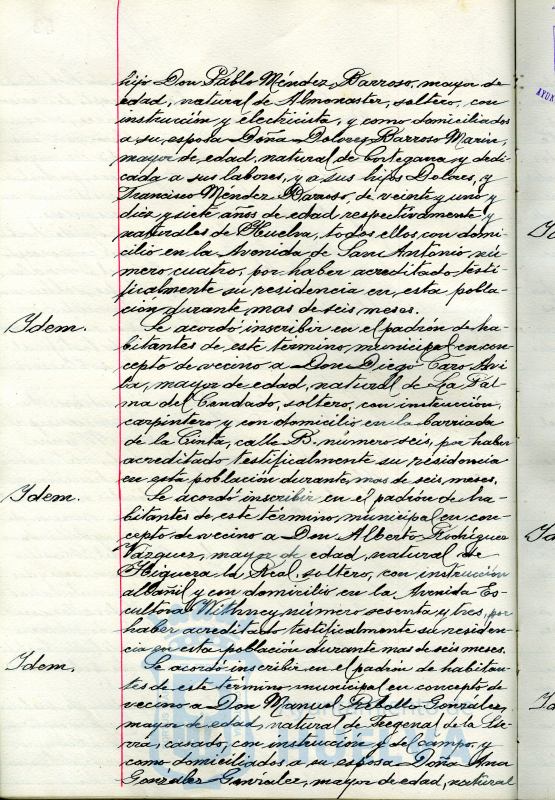 hijo Don Pablo Méndez Barroso, mayor de
edad, natural de Almonaster, soltero, con
instrucción y electricista, y como domiciliados
a su esposa Doña Dolores Barroso Marín,
mayor de edad, natural de Cortegana y dedi-
cada a sus labores, y a sus hijos Dolores, y
Francisco Méndez Barroso, de veinte y uno y
diez y siete años de edad respectivamente y
naturales de Huelva, todos ellos con domi-
cilio en la Avenida de San Antonio nú-
mero cuatro, por haber acreditado testi-
ficalmente su residencia en esta pobla-
ción durante mas de seis meses.
Idem. Se acordó inscribir en el padrón de ha-
bitantes de este término municipal en con-
cepto de vecino a Don Diego Caro Avi
la, mayor de edad, natural de La Pal-
ma del Condado, soltero, con instrucción,
carpintero y con domicilio en la barriada
de la Cinta, calle R. número seis, por haber
acreditado testificalmente su residencia
en esta población durante mas de seis meses.
Idem. Se acordó inscribir en el padrón de ha-
bitantes de este término municipal en con-
cepto de vecino a Don Alberto Rodríguez
Vázquez, mayor de edad, natural de
Higuera la Real, soltero, con instrucción
albañil y con domicilio en la Avenida Es-
cultora Withney número sesenta y tres, por
haber acreditado testificalmente su residen-
cia en esta población durante mas de seis meses.
Idem. Se acordó inscribir en el padrón de habitan-
tes de este término municipal en concepto de
vecino a Don Manuel Rebollo González,
mayor de edad, natural de Fregenal de la Sie-
rra, casado, con instrucción y del campo, y
como domiciliados a su esposa Doña Ana
González González, mayor de edad, natural
HUELVA